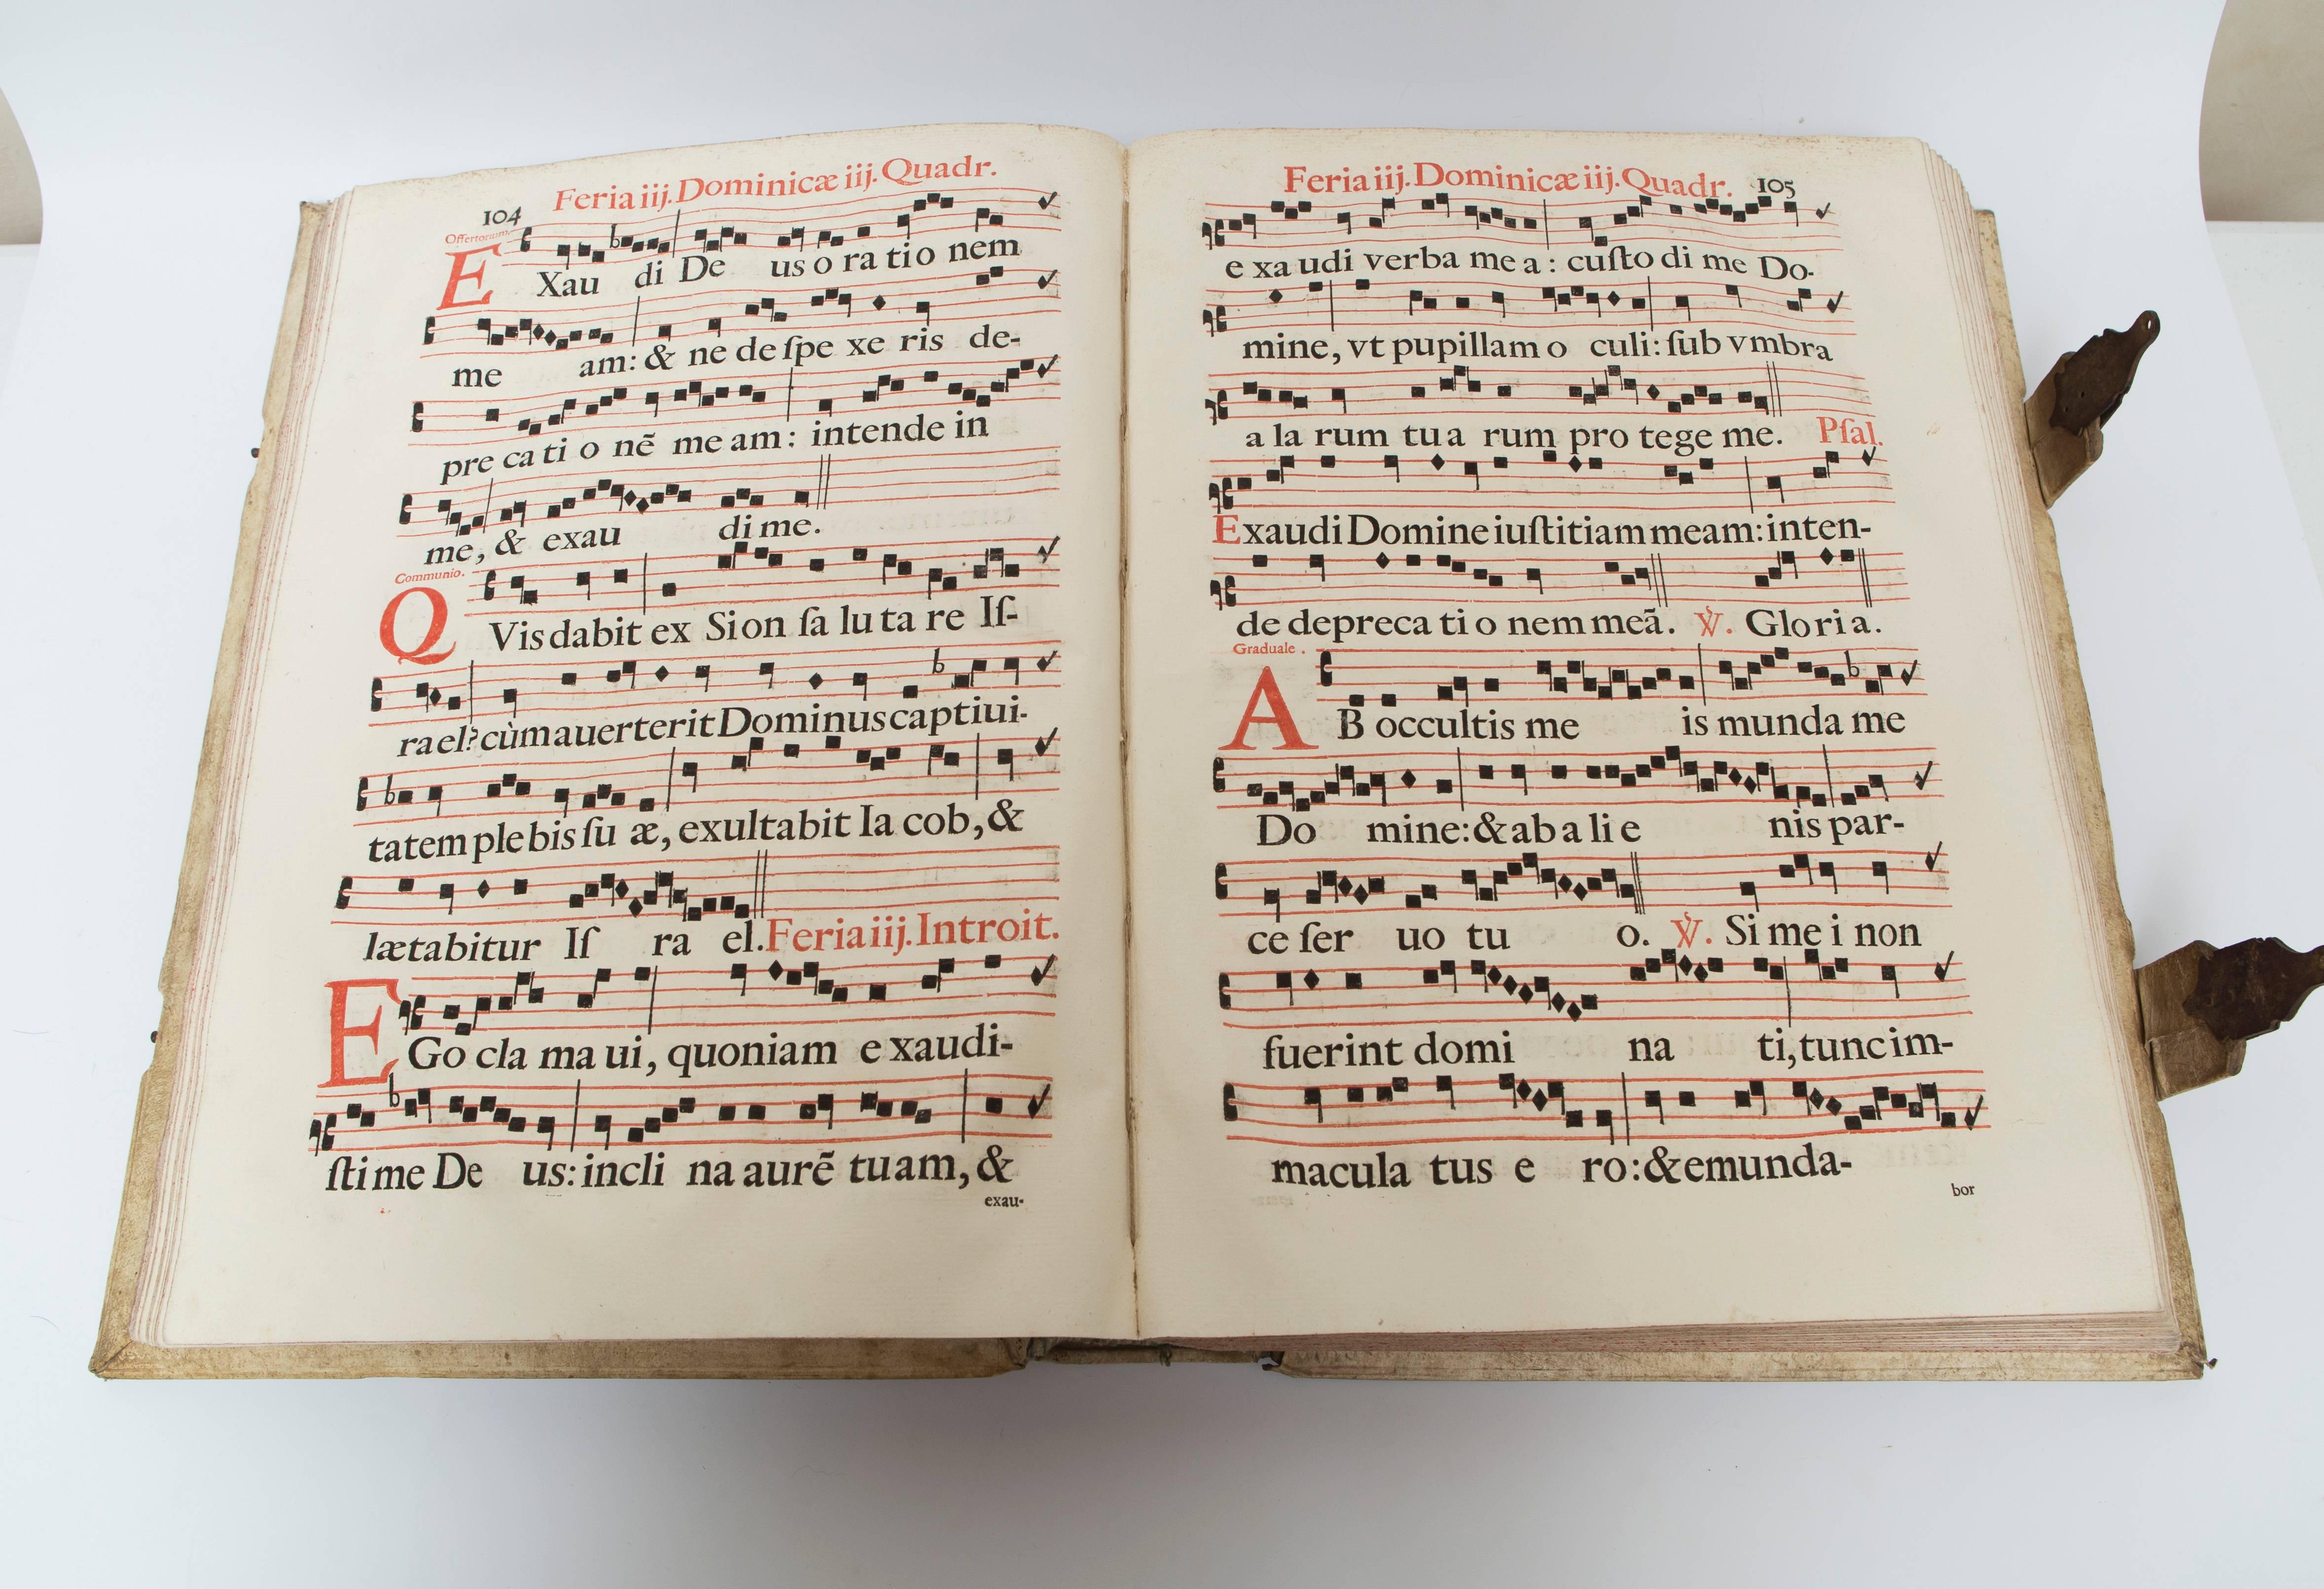 104 Feria iij. Dominicæ iij. Quadr.
Offertorium.
EXau di De us o ra tio nem
me am: & ne de ſpe xe ris de-
pre ca ti o nē me am: intende in
me, & exau di me.
Communio.
QVis dabit ex Sion ſa lu ta re Iſ-
rael? cùm auerterit Dominus captiui-
tatem plebis ſu æ, exultabit Ia cob, &
lætabitur Iſ ra el. Feria iij. Introit.
EGo cla ma ui, quoniam e xaudi-
ſti me De us: incli na aurē tuam, &
exau-
Feria iij. Dominicæ iij. Quadr. 105
e xa udi verba me a: cuſto di me Do-
mine, vt pupillam o culi: ſub vmbra
a la rum tu a rum pro tege me. Pſal.
Exaudi Domine iuſtitiam meam: inten-
de depreca ti o nem meã. ℣. Glori a.
Graduale.
AB occultis me is munda me
Do mine: & ab a li e nis par-
ce ſer uo tu o. ℣. Si me i non
fuerint domi na ti, tunc im-
macula tus e ro: & emunda-
bor